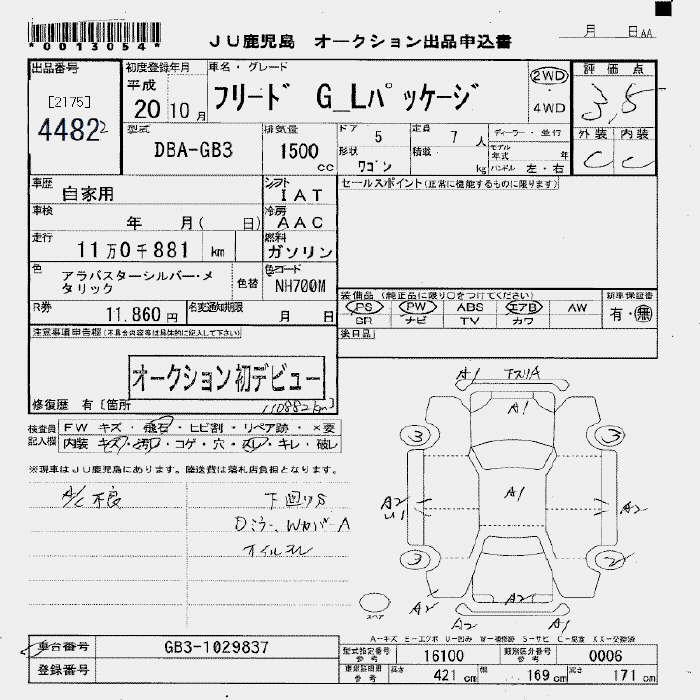 *0013054*
JU鹿児島 オークション出品申込書
月 日 AA
出品番号
[2175]
4482
初度登録年月
平成
20 10 月
車名・グレード
フリード G_Lパッケージ
2WD
4WD
評価点
3,5
型式
DBA-GB3
排気量
1500
cc
ドア 5
定員 7 人
形状 ワゴン
積載 kg
ディーラー・並行
モデル年式 年
ハンドル 左・右
外装 内装
C C
車歴
自家用
シフト
IAT
セールスポイント(正常に機能するものに限ります)
車検
年 月( 日)
冷房
AAC
走行
11万0千881 km
燃料
ガソリン
色
アラバスターシルバー・メ
タリック
色替
色コード
NH700M
R券
11,860円
名変通知期限
月 日
装備品 (純正品に限り○をつけてください)
PS PW ABS エアB AW
SR ナビ TV カワ
新車保証書
有・無
注意事項申告欄(不具合内容等は具体的に記入して下さい)
後日品
オークション初デビュー
修復歴 有 [箇所
110882km]
検査員
記入欄
FW キズ・飛石・ヒビ割・リペア跡・×要
内装 キズ・汚れ・コゲ・穴・スレ・キレ・破レ
※現車はJU鹿児島にあります。陸送費は落札店負担となります。
A/C不良
下回りS
Dミラー、WカバーA
オイルモレ
A1 下スリA
A1
3 3
A2 A1 A2
U1
3 2
スペア
A2 A2
A2 A1
A-キズ E-エクボ U-凹み W-補修跡 S-サビ C-腐食 XX-交換済
車台番号 GB3-1029837
登録番号
型式指定番号
参考
16100
類別区分番号
参考
0006
車両証明書
参考
長さ 421 cm
幅 169 cm
高さ 171 cm